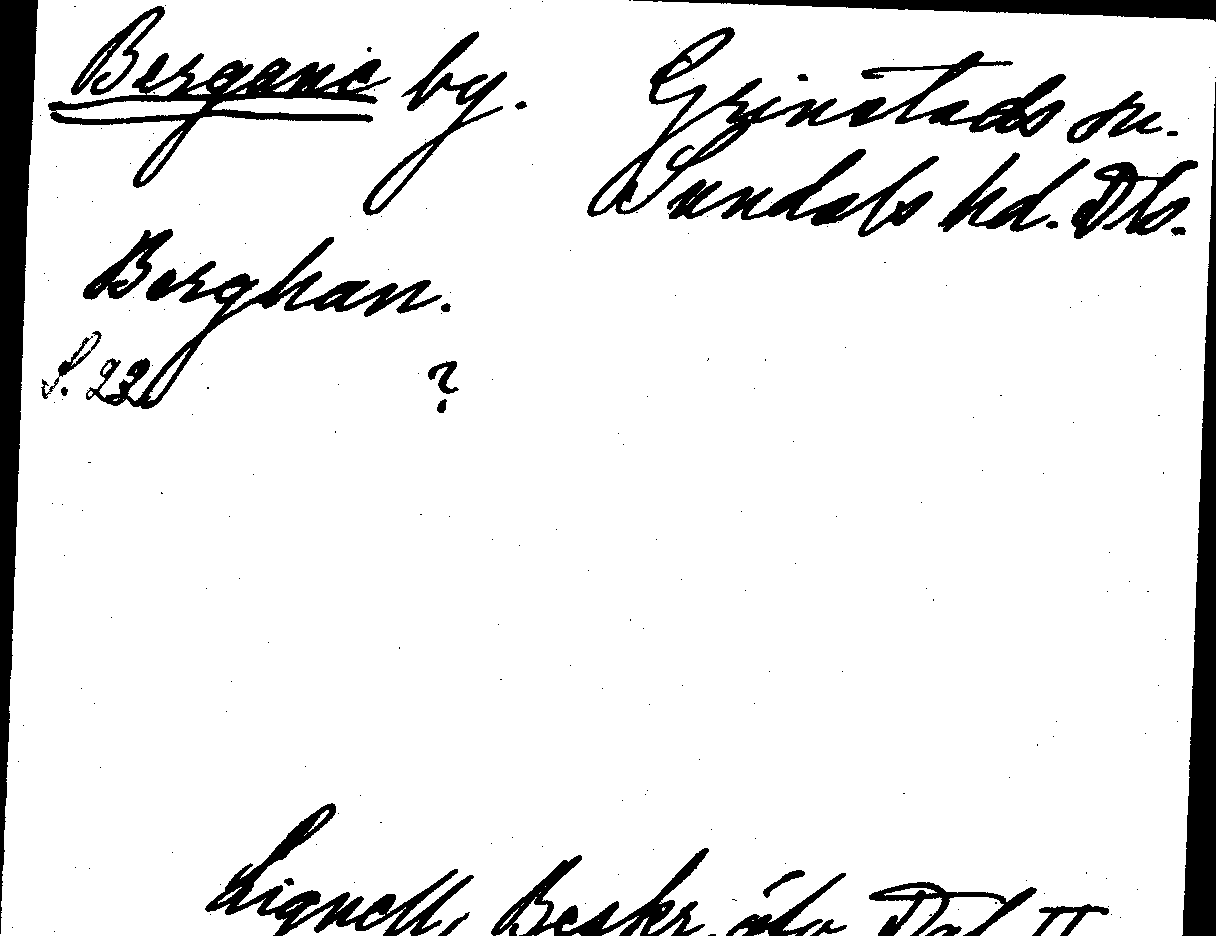 Bergane by. Grinstads sn.
Sundals hd. Dls.
Berghan.
S. 22 ?
Lignell, Beskr. öfv. Dal II